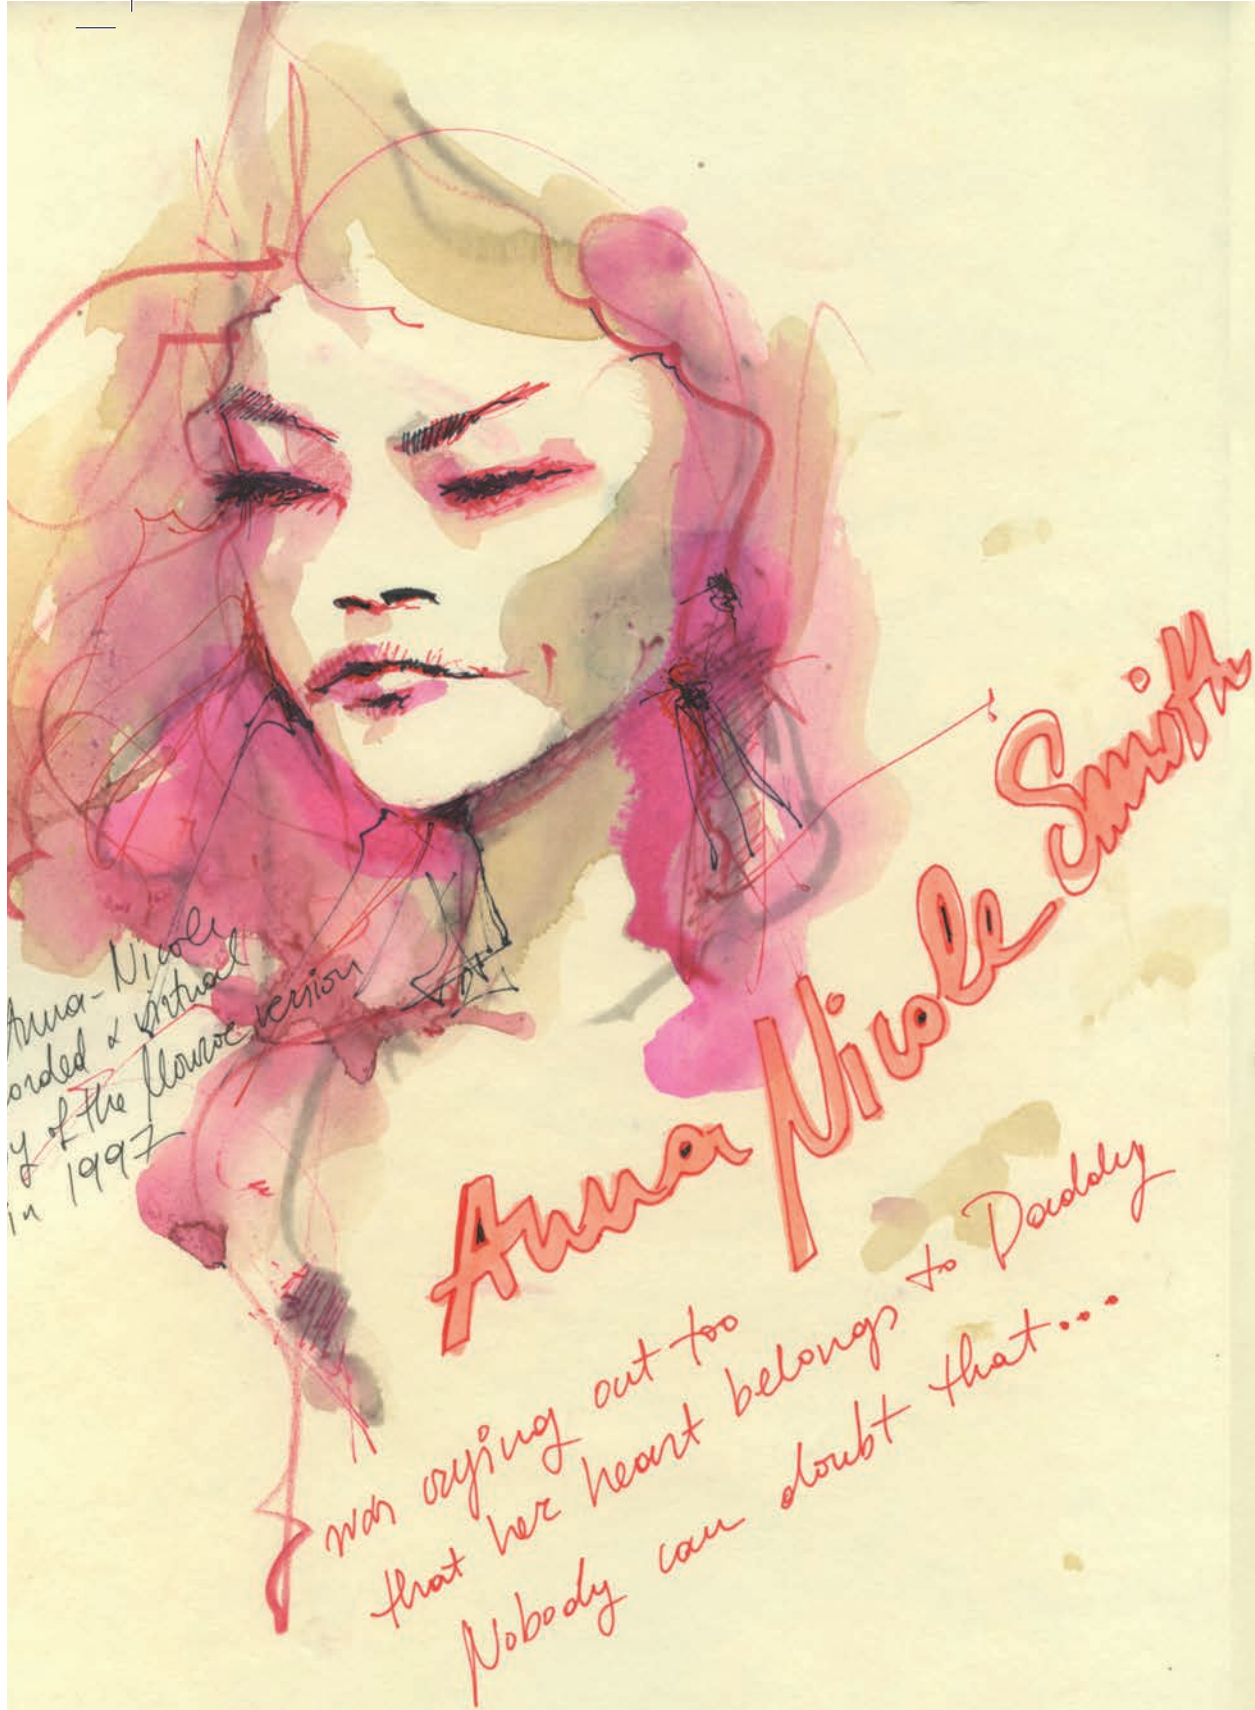 Anna-Nicole
orded a virtual
y of the Monroe version
in 1997
Anna Nicole Smith
was crying out too
that her heart belongs to Daddy
Nobody can doubt that...